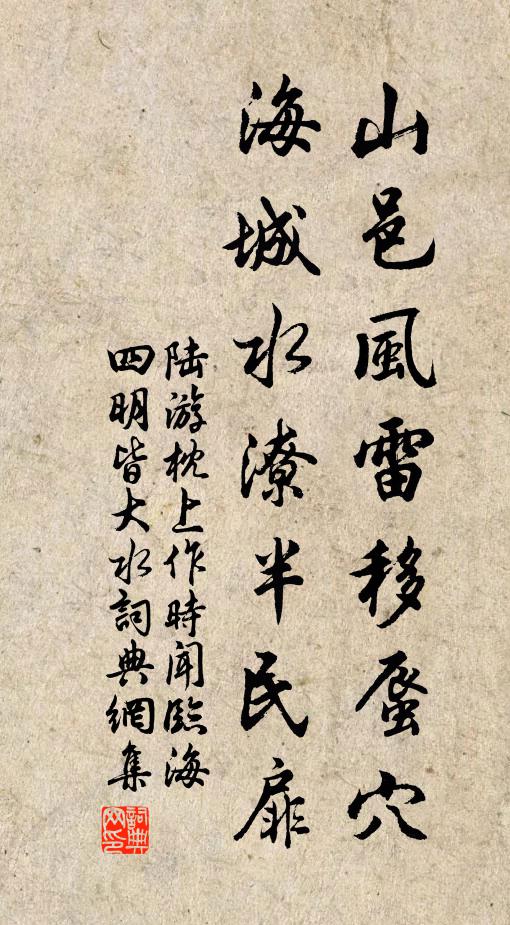 山邑風雷移蜃穴
海城水潦半民扉
陆游枕上作時闻臨海
四明皆大水詞典網集
詞典网印